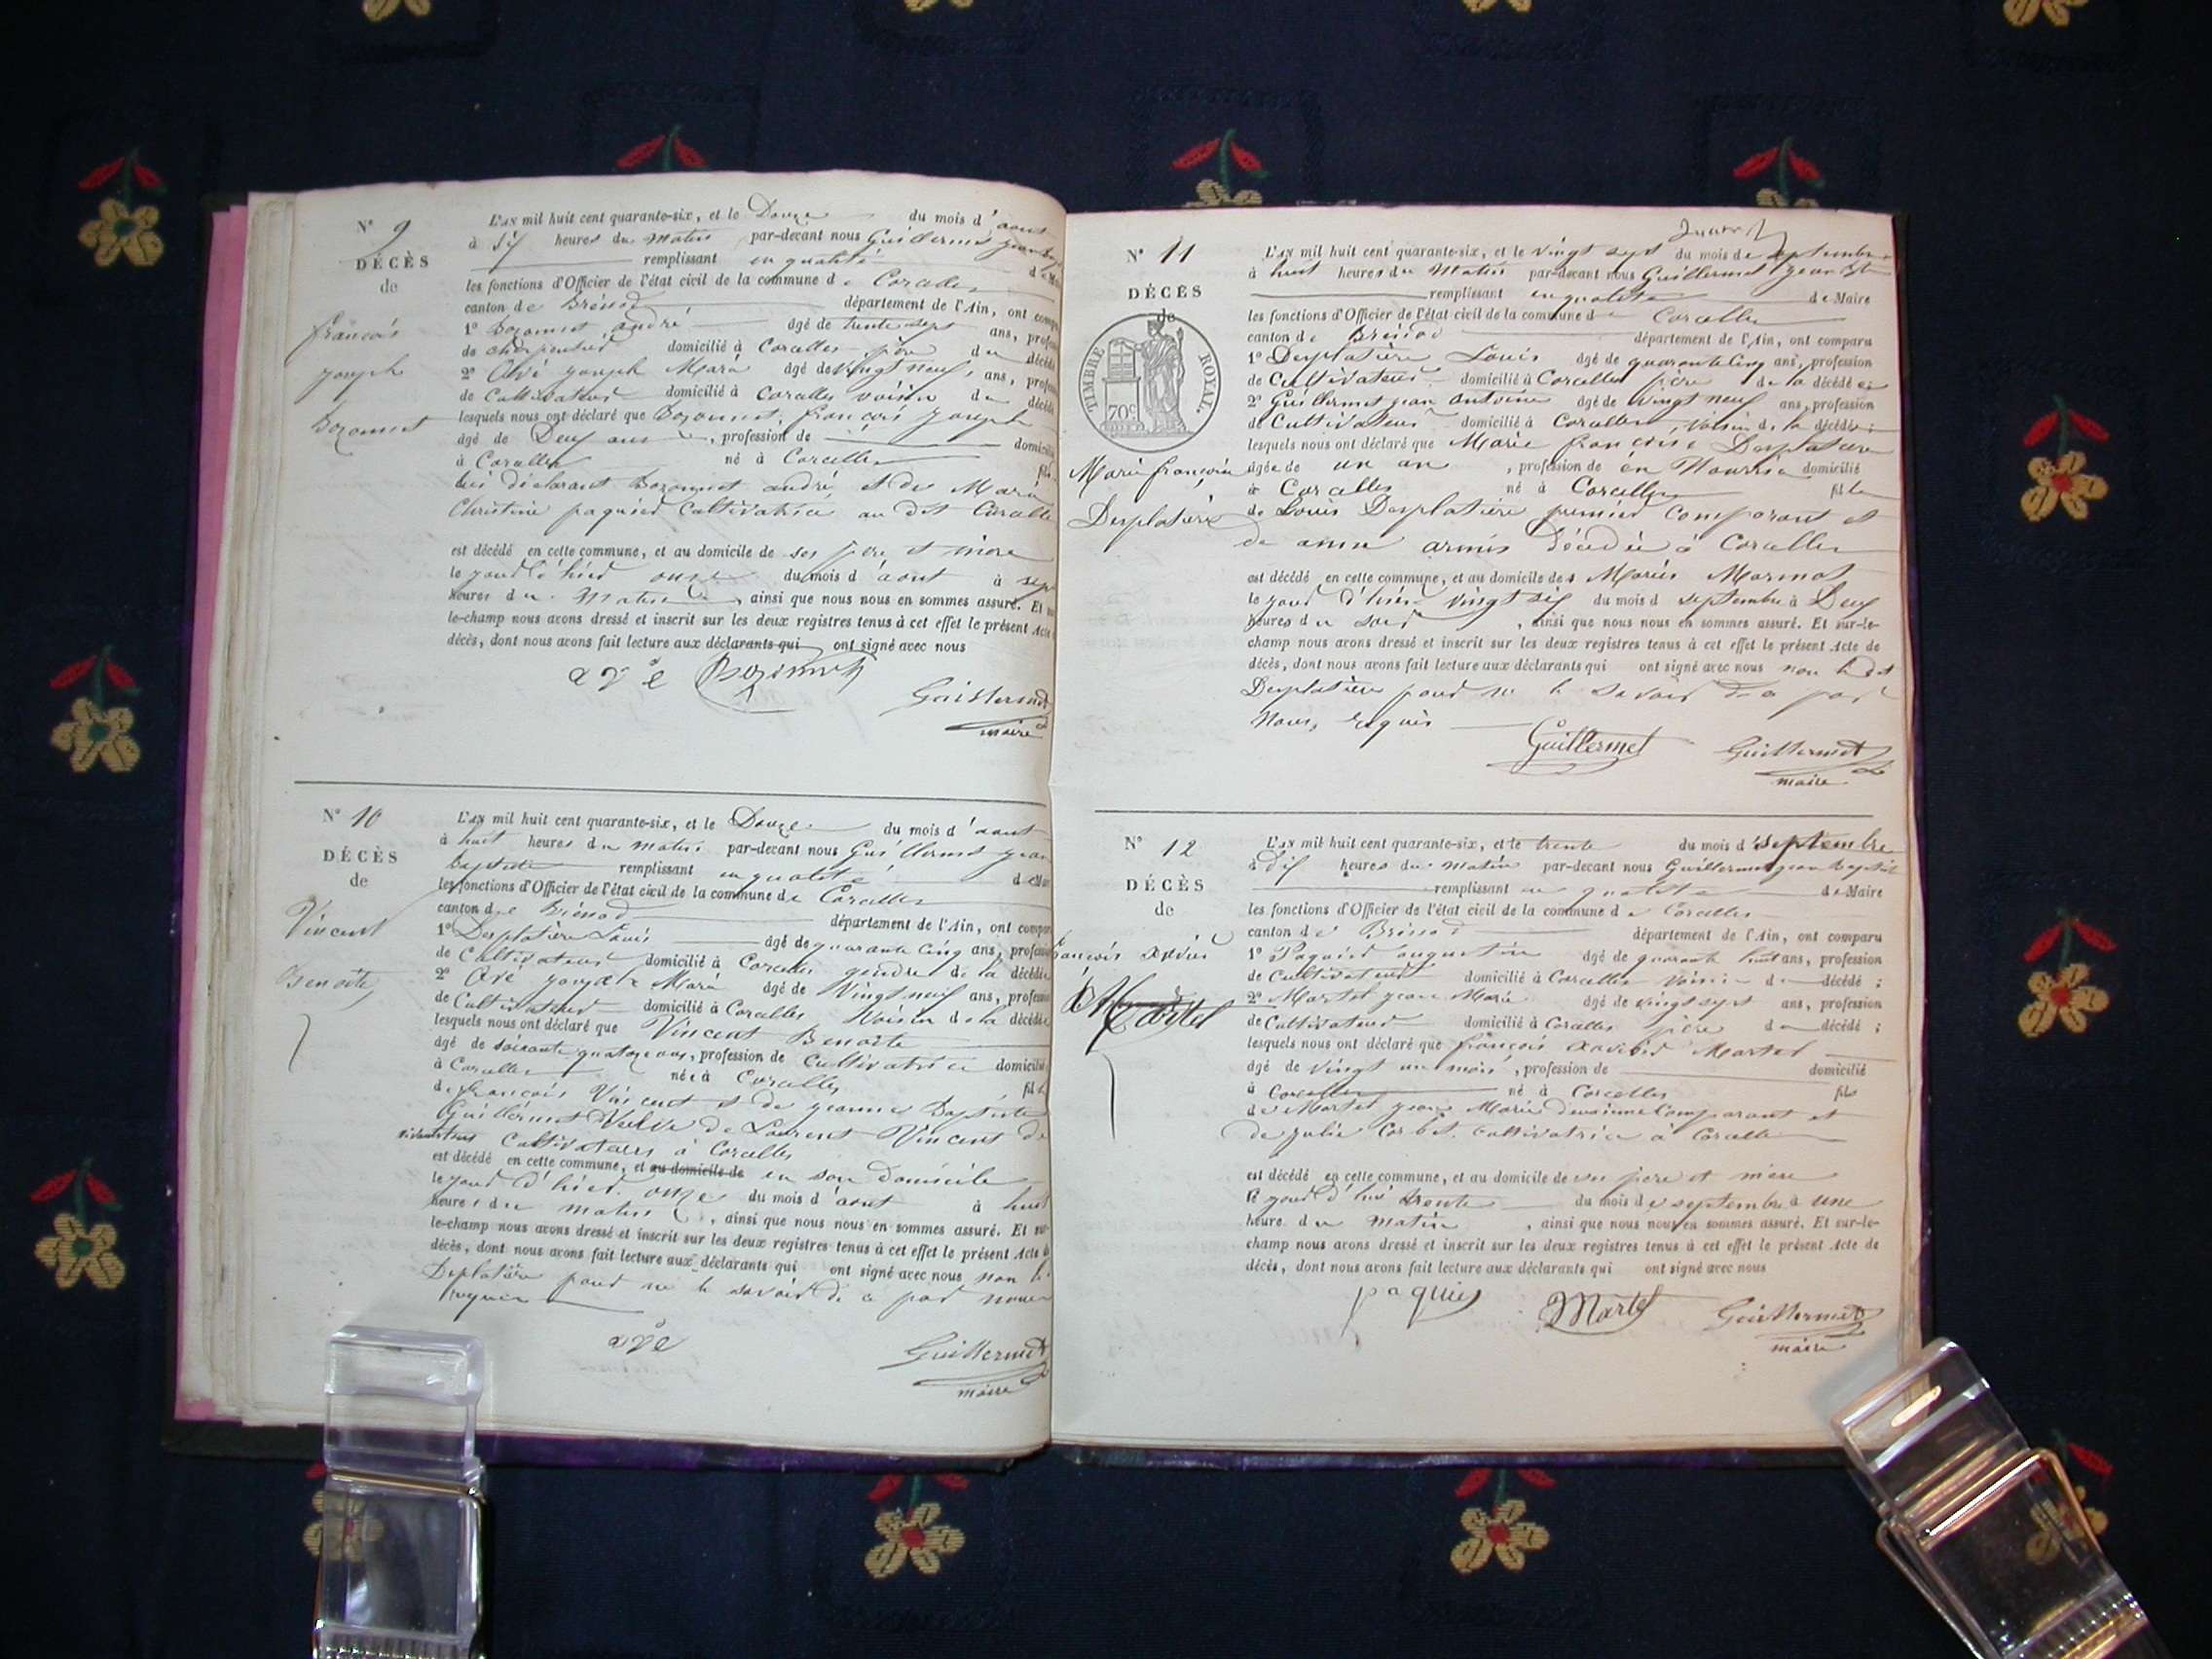 N° 9
DÉCÈS
de
françois
joseph
Bozonnet
L'AN mil huit cent quarante-six, et le Douze du mois d'aout
à dix heures du matin par-devant nous Guillermet jean
remplissant en qualité de
les fonctions d'Officier de l'état civil de la commune de Corcelles
canton de Brénod département de l'Ain, ont
1° Bozonnet andré âgé de trente sept ans,
de charpentier domicilié à Corcelles père du décédé
2° Avé joseph Marie âgé de vingt neuf ans,
de Cultivateur domicilié à Corcelles voisin du décédé
lesquels nous ont déclaré que Bozonnet françois joseph
âgé de Deux ans, profession de domicilié
à Corcelles né à Corcelles fils
du déclarant Bozonnet andré et de Marie
Christine paquied Cultivatrice au dit Corcelles
est décédé en cette commune, et au domicile de ses père et mère
le jour d'hier onze du mois d'aout à sept
heures du matin, ainsi que nous nous en sommes assuré. Et
le-champ nous avons dressé et inscrit sur les deux registres tenus à cet effet le présent Acte
décès, dont nous avons fait lecture aux déclarants qui ont signé avec nous
avé Bozonnet
Guillermet
maire
N° 10
DÉCÈS
de
Vincent
Benoite
L'AN mil huit cent quarante-six, et le Douze du mois d'aout
à huit heures du matin par-devant nous Guillermet jean
Baptiste remplissant en qualité de
les fonctions d'Officier de l'état civil de la commune de Corcelles
canton de Brénod département de l'Ain, ont
1° Desplatière Louis âgé de quarante cinq ans,
de Cultivateur domicilié à Corcelles gendre de la décédée
2° Avé joseph Marie âgé de Vingt neuf ans,
de Cultivateur domicilié à Corcelles Voisin de la décédée
lesquels nous ont déclaré que Vincent Benoite
âgé de soixante quatorze ans, profession de cultivatrice domicilié
à Corcelles née à Corcelles fille
de françois Vincent et de jeanne Baptiste
Guillermet Veuve de Laurent Vincent de
Cultivateurs à Corcelles
est décédé en cette commune, et au domicile de en son Domicile
le jour d'hier onze du mois d'aout à huit
heures du matin, ainsi que nous nous en sommes assuré. Et
le-champ nous avons dressé et inscrit sur les deux registres tenus à cet effet le présent Acte
décès, dont nous avons fait lecture aux déclarants qui ont signé avec nous non le
Deplatière pour ne le savoir de ce par nous
requis
avé
Guillermet
maire
N° 11
DÉCÈS
de
TIMBRE ROYAL.
70c
Marie françoise
Desplatière
L'AN mil huit cent quarante-six, et le vingt sept du mois de septembre
à huit heures du matin par-devant nous Guillermet jean Bte
remplissant en qualité de Maire
les fonctions d'Officier de l'état civil de la commune de Corcelles
canton de Brénod département de l'Ain, ont comparu
1° Desplatière Louis âgé de quarante cinq ans, profession
de Cultivateur domicilié à Corcelles père de la décédée
2° Guillermet jean antoine âgé de Vingt neuf ans, profession
de Cultivateur domicilié à Corcelles, Voisin de la décédée ;
lesquels nous ont déclaré que Marie françoise Desplatière
âgée de un an, profession de en Nourrice domicilié
à Corcelles né à Corcelles fille
de Louis Desplatière premier comparant et
de anne armis décédée à Corcelles
est décédé en cette commune, et au domicile de Mariés Marinet
le jour d'hier vingt six du mois d septembre à Deux
heures du soir, ainsi que nous nous en sommes assuré. Et sur-le-
champ nous avons dressé et inscrit sur les deux registres tenus à cet effet le présent Acte de
décès, dont nous avons fait lecture aux déclarants qui ont signé avec nous non le dit
Desplatière pour ne le savoir de ce par
Nous, requis
Guillermet Guillermet
maire
N° 12
DÉCÈS
de
françois xavier
Martel
L'AN mil huit cent quarante-six, et le trente du mois d septembre
à dix heures du matin par-devant nous Guillermet jean Baptiste
remplissant en qualité de Maire
les fonctions d'Officier de l'état civil de la commune de Corcelles
canton de Brénod département de l'Ain, ont comparu
1° Paquied augustin âgé de quarante huit ans, profession
de cultivateur domicilié à Corcelles Voisin du décédé ;
2° Martel jean Marie âgé de vingt sept ans, profession
de Cultivateur domicilié à Corcelles père du décédé ;
lesquels nous ont déclaré que françois xavier Martel
âgé de vingt un mois, profession de domicilié
à Corcelles né à Corcelles fils
de Martel jean Marie deuxieme Comparant et
de julie Corbet cultivatrice à Corcelles
est décédé en cette commune, et au domicile de ses père et mère
le jour d'hui trente du mois de septembre à une
heure du matin, ainsi que nous nous en sommes assuré. Et sur-le-
champ nous avons dressé et inscrit sur les deux registres tenus à cet effet le présent Acte de
décès, dont nous avons fait lecture aux déclarants qui ont signé avec nous
paquied Martel Guillermet
maire